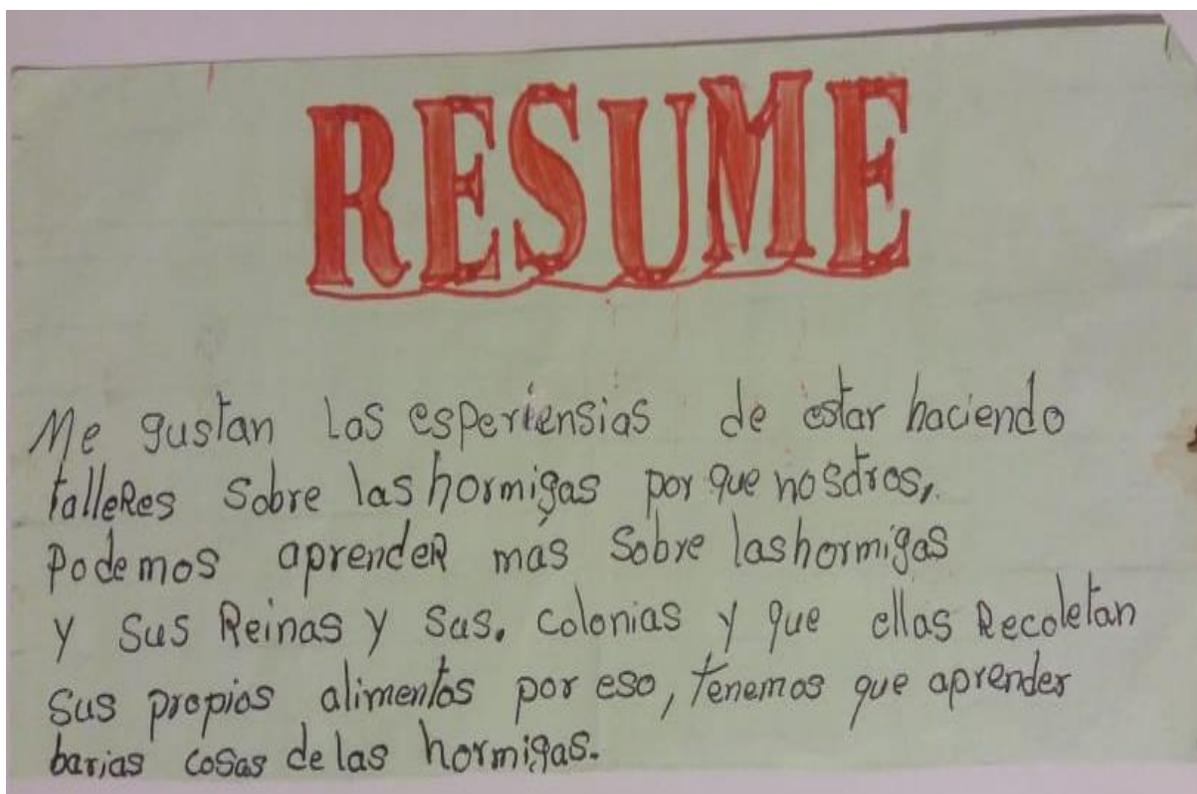 RESUME
Me gustan las esperiensias de estar haciendo
talleRes sobre las hormigas por que nosotros,
Podemos aprendeR mas sobre lashormigas
y sus Reinas y sus. colonias y que ellas Recoletan
sus propios alimentos por eso, tenemos que aprender
barias cosas de las hormigas.